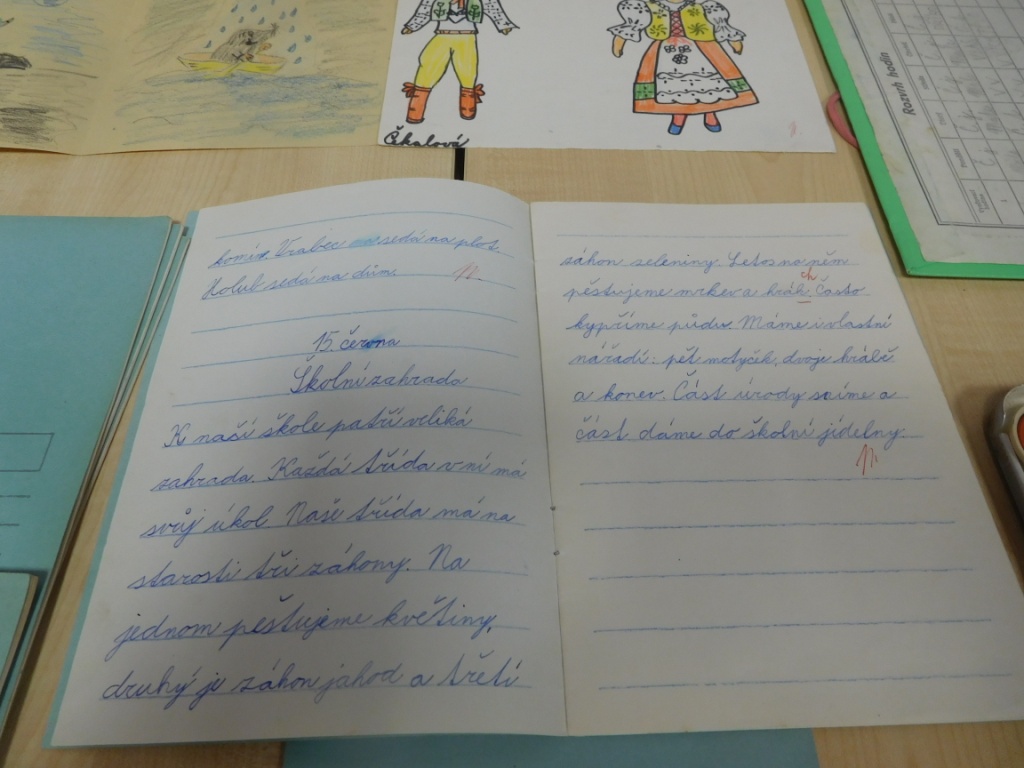 Čkalová
Rozvrh hodin
komín. Vrabec sedá na plot.
Holub sedá na dům.
15. června
Školní zahrada
K naší škole patří veliká
zahrada. Každá třída v ní má
svůj úkol. Naše třída má na
starosti tři záhony. Na
jednom pěstujeme květiny,
druhý je záhon jahod a třetí
záhon zeleniny. Letos na něm
pěstujeme mrkev a hrách. Často
kypříme půdu. Máme i vlastní
nářadí: pět motyček, dvoje hrábě
a konev. Část úrody sníme a
část dáme do školní jídelny.